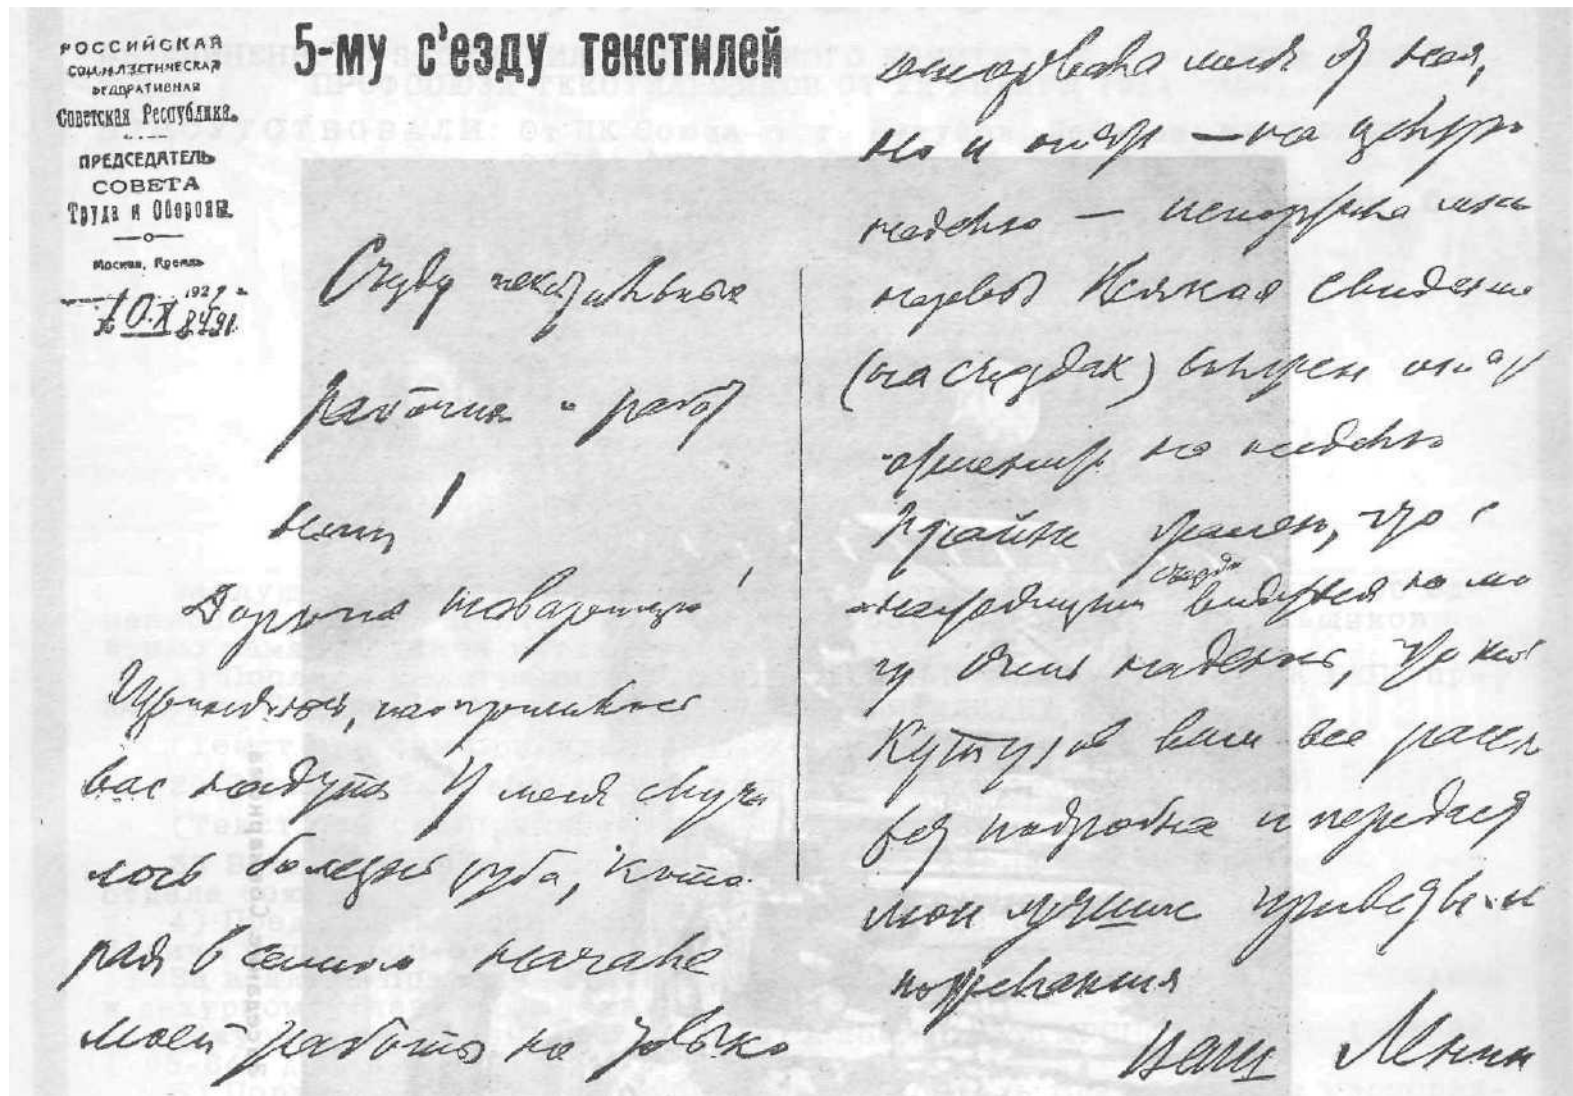 РОССИЙСКАЯ
СОЦИАЛИСТИЧЕСКАЯ
ФЕДЕРАТИВНАЯ
Советская Республика.
ПРЕДСЕДАТЕЛЬ
СОВЕТА
Труда и Обороны.
Москва, Кремль
10.X 1922
5-му с'езду текстилей
Съезду текстильных
рабочих и работ
ниц!
Дорогие товарищи!
вас надуть У меня случи
лось болезнь зуба, кото
рая в самом начале
моей работы не только
оторвала меня от нея,
но и опять — на целую
неделю — испортила мои
нервы Всякие свидания
(на съездах) опять
на неделю
Крайне жалею, что с
съездом видеться не мо
гу Очень надеюсь, что тов
Кутузов вам все расск
подробнее и передаст
мои лучшие приветы и
пожелания
Ваш Ленин